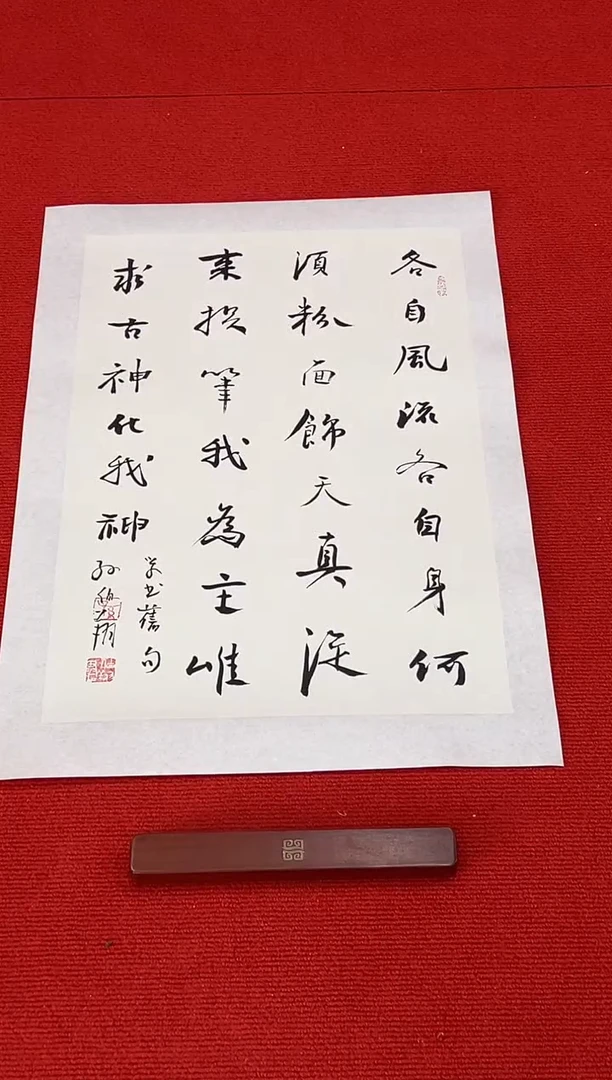 各自風流各自身何
須粉面飾天真從
来投筆我為主唯
求古神化我神
学书舊句
孙翔